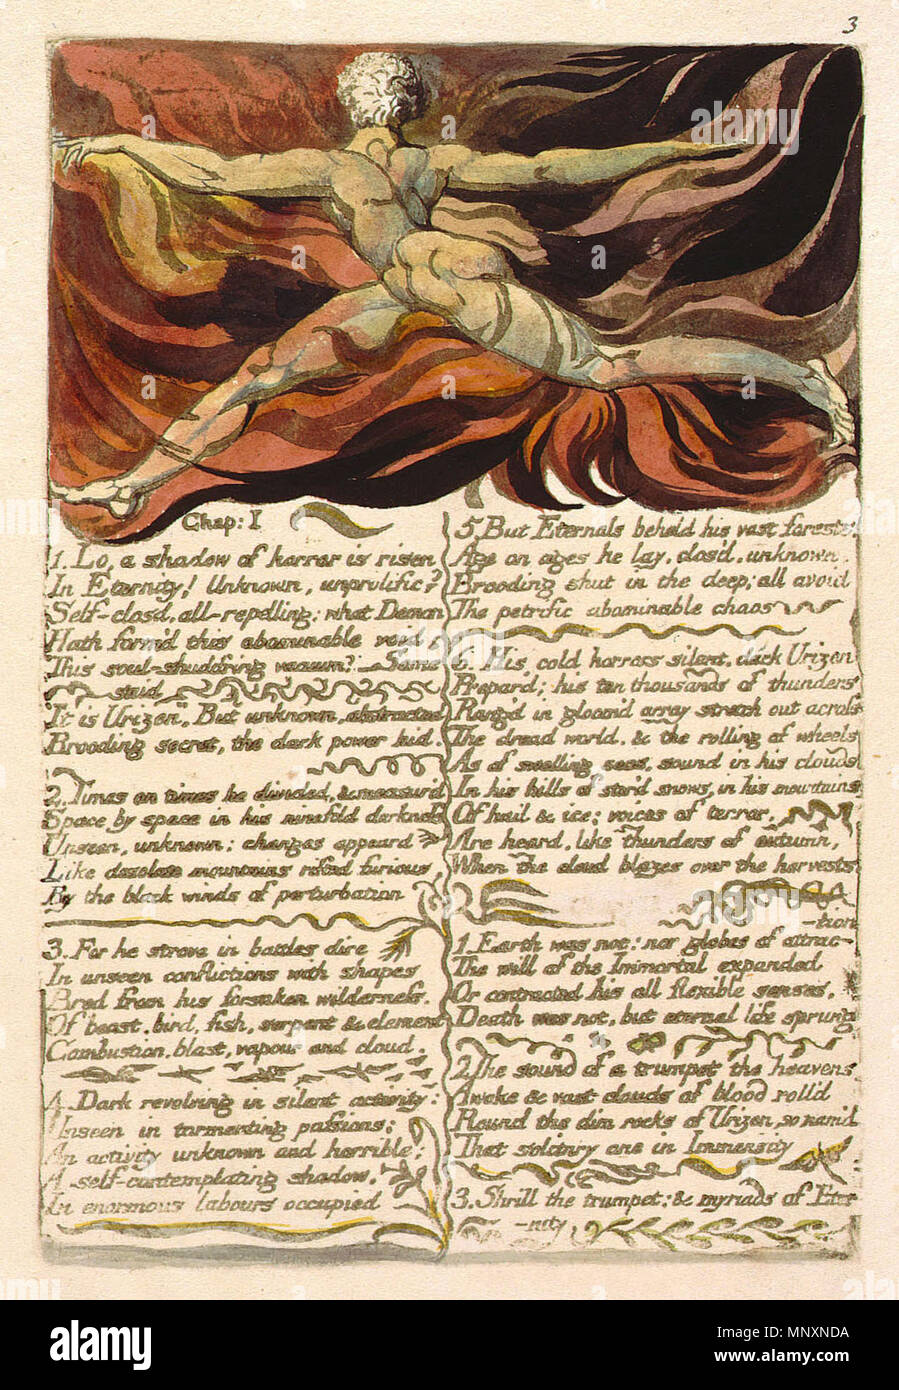 3
Chap: I
1. Lo, a shadow of horror is risen
In Eternity! Unknown, unprolific?
Self-closd, all-repelling: what Demon
Hath form'd this abominable void,
This soul-shudd'ring vacuum? Some
said
"It is Urizen", But unknown, abstracted
Brooding secret, the dark power hid.
2. Times on times he divided, & measur'd
Space by space in his ninefold darkness
Unseen, unknown: changes appeard
Like desolate mountains rifted furious
By the black winds of perturbation
3. For he strove in battles dire
In unseen conflictions with shapes
Bred from his forsaken wilderness,
Of beast, bird, fish, serpent & element
Combustion, blast, vapour and cloud.
4. Dark revolving in silent activity:
Unseen in tormenting passions;
An activity unknown and horrible;
A self-contemplating shadow,
In enormous labours occupied
5. But Eternals beheld his vast forests
Age on ages he lay, clos'd, unknown,
Brooding shut in the deep; all avoid
The petrific abominable chaos
6. His cold horrors silent, dark Urizen
Prepar'd; his ten thousands of thunders
Rang'd in gloom'd array stretch out across
The dread world, & the rolling of wheels
As of swelling seas, sound in his clouds
In his hills of stor'd snows, in his mountains
Of hail & ice; voices of terror,
Are heard, like thunders of autumn,
When the cloud blazes over the harvests
-tion
1. Earth was not: nor globes of attrac-
The will of the Immortal expanded
Or contracted his all flexible senses.
Death was not, but eternal life sprung
2. The sound of a trumpet the heavens
Awoke & vast clouds of blood roll'd
Round the dim rocks of Urizen, so nam'd
That solitary one in Immensity
3. Shrill the trumpet: & myriads of Eter-
-nity,
alamy
Image ID: MNXNDA
www.alamy.com